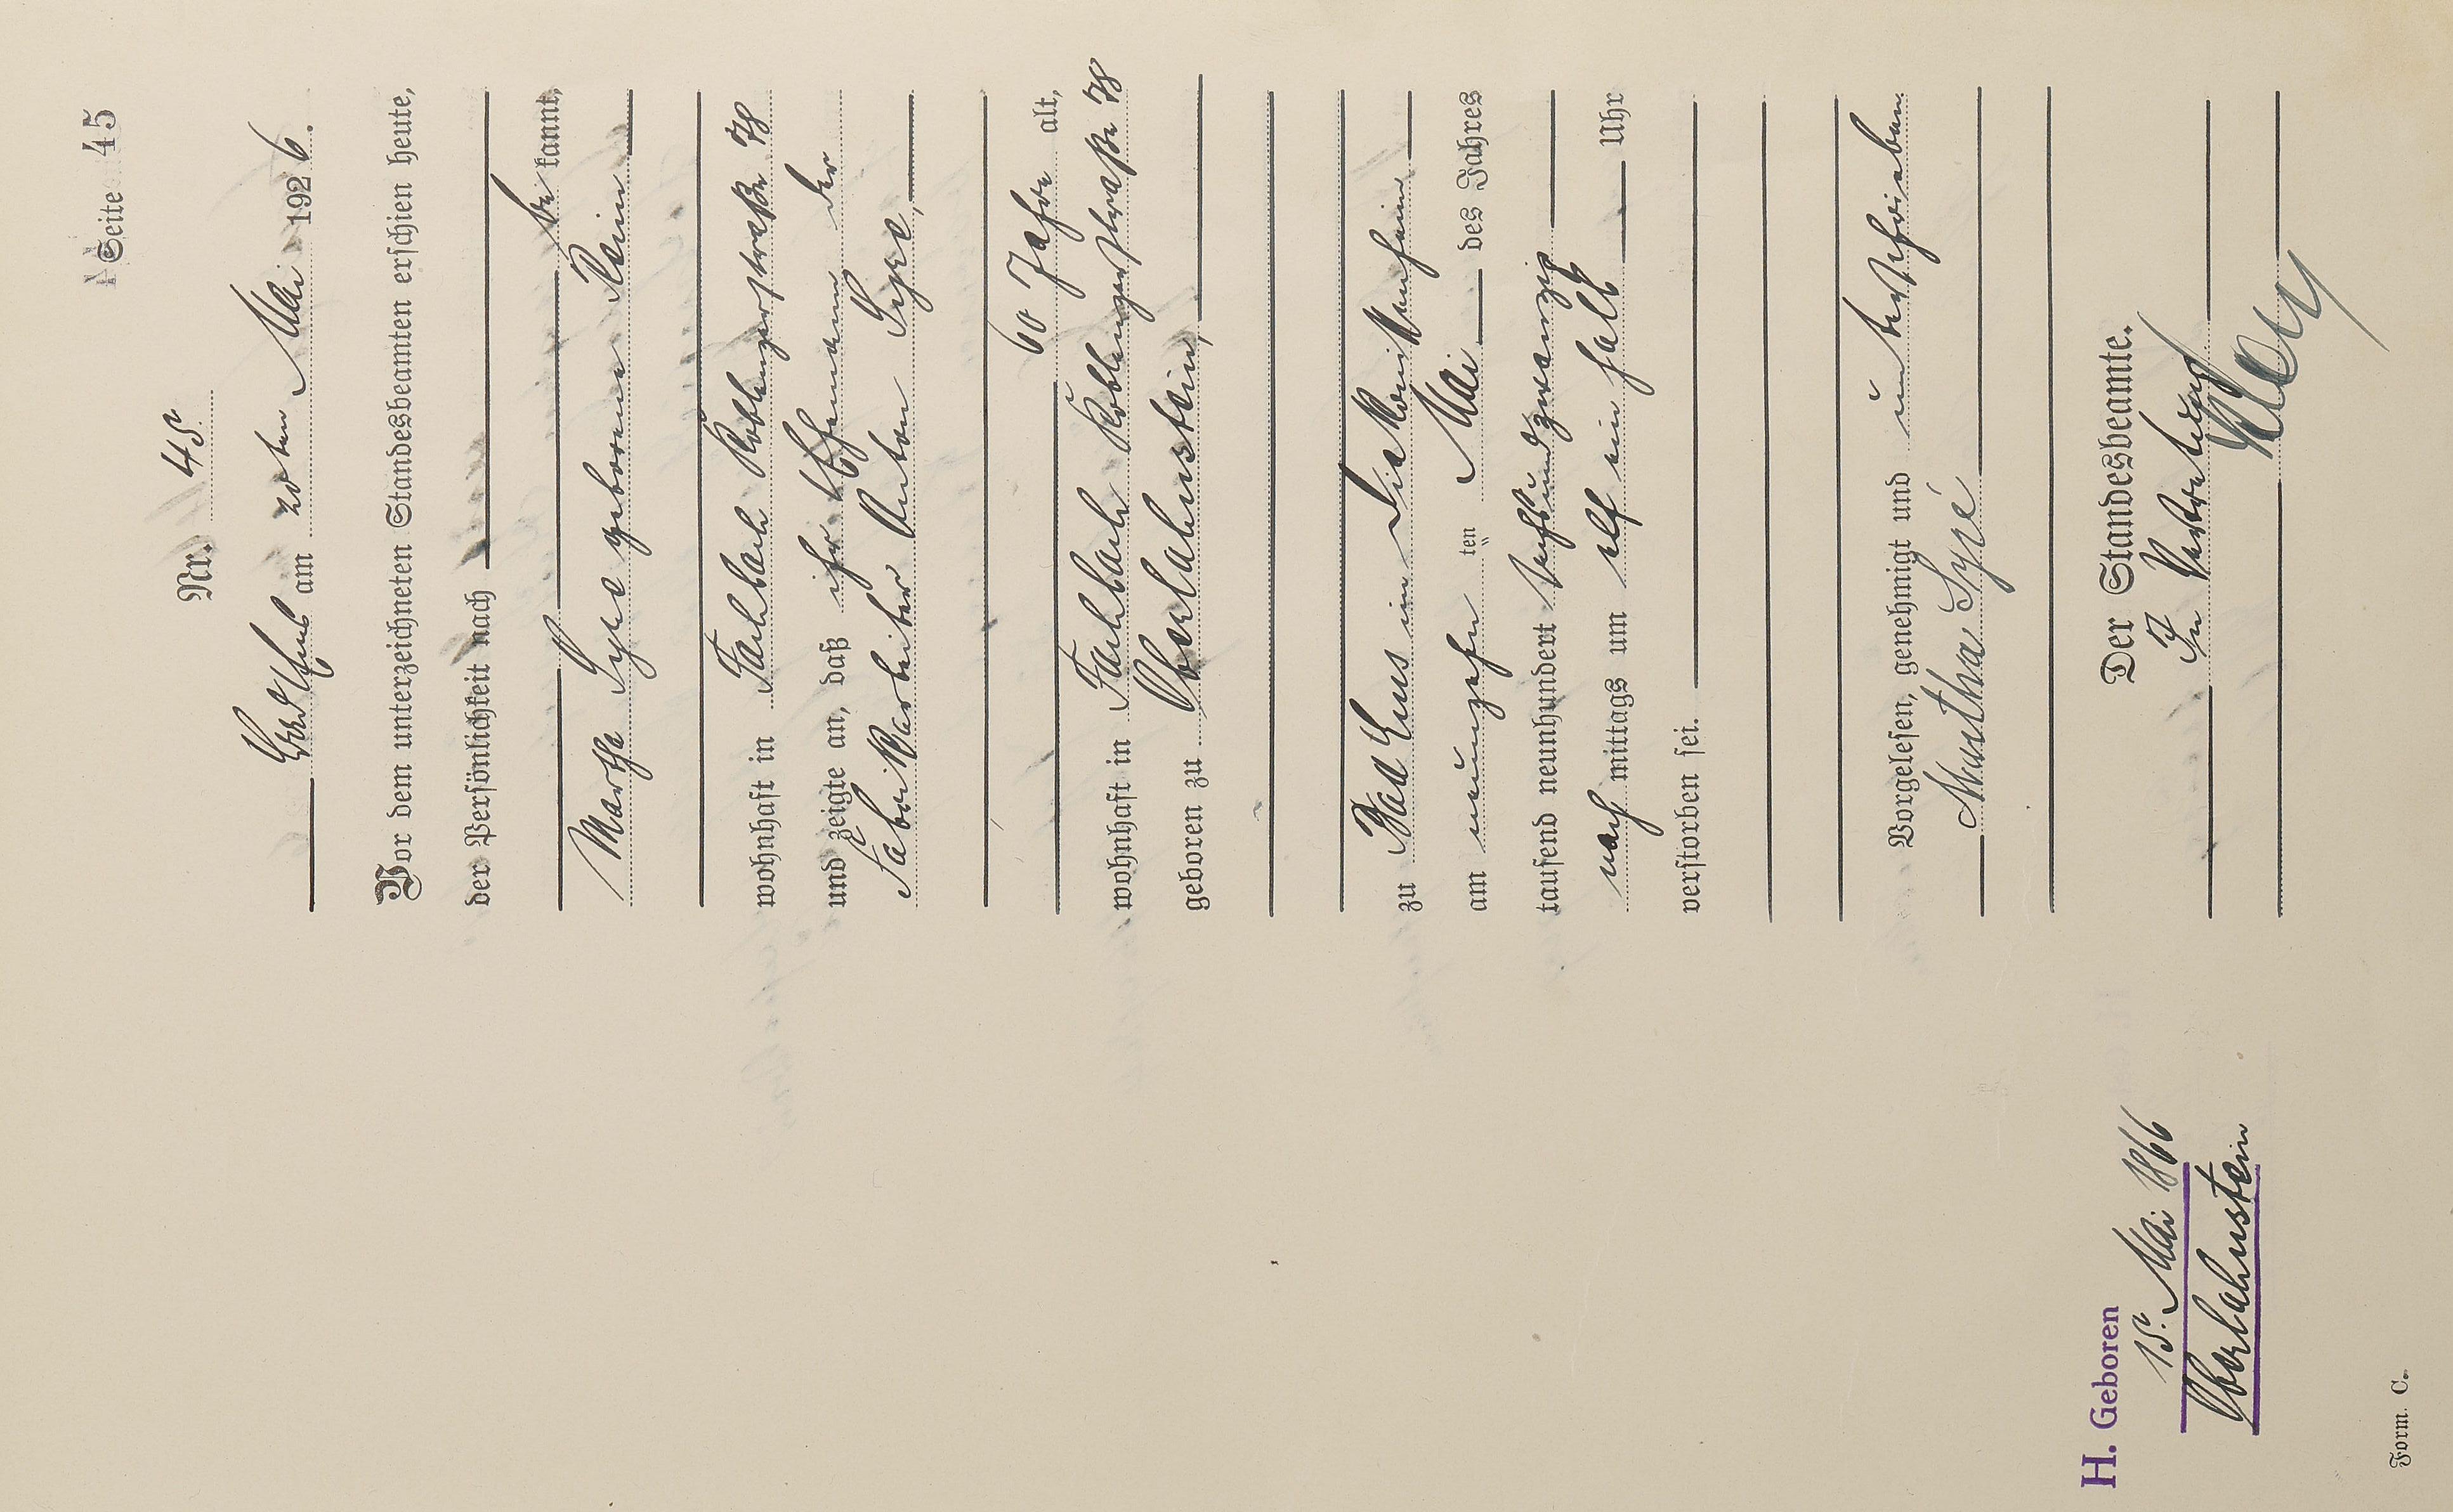 Seite 45
Nr. 45.
Bad Ems am 20ten Mai 1926.
Vor dem unterzeichneten Standesbeamten erschien heute,
der Persönlichkeit nach
be kannt,
Martha Syré geborene
wohnhaft in Fachbach Koblenzerstraße 78
und zeigte an, daß ihr Ehemann der
Fabrikarbeiter Anton Syré,
60 Jahre alt,
wohnhaft in Fachbach Koblenzerstraße 78
geboren zu Oberlahnstein,
zu Bad Ems im Diakonissenheim
am neunzehn ten Mai des Jahres
tausend neunhundert sechsundzwanzig
nach mittags um elf ein halb Uhr
verstorben sei.
Vorgelesen, genehmigt und unterschrieben.
Martha Syré
Der Standesbeamte.
In Vertretung
H. Geboren
15. Mai 1866
Oberlahnstein
Form. C.